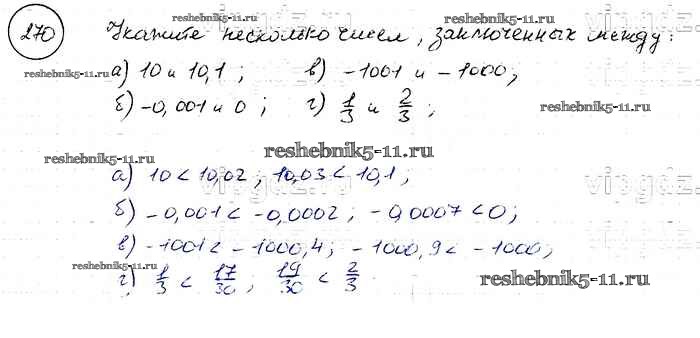 reshebnik5-11.ru
270 Укажите несколько чисел, заключенных между:
reshebnik5-11.ru
а) 10 и 10,1; в) -1001 и -1000;
б) -0,001 и 0; г) 1/3 и 2/3;
reshebnik5-11.ru
reshebnik5-11.ru
reshebnik5-11.ru
vipgdz.ru
а) 10 < 10,02; 10,03 < 10,1;
б) -0,001 < -0,0002; -0,0007 < 0;
в) -1001 < -1000,4; -1000,9 < -1000;
reshebnik5-11.ru
г) 1/3 < 17/30; 19/30 < 2/3
reshebnik5-11.ru